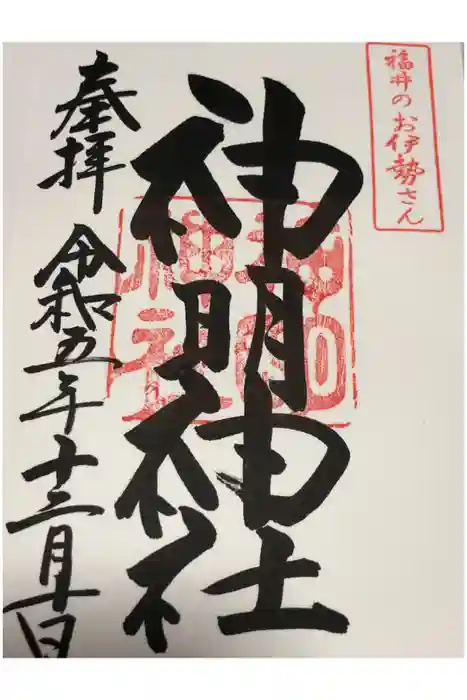 福井のお伊勢さん
神明神社
神明
神社
奉拝
令和五年十二月十日